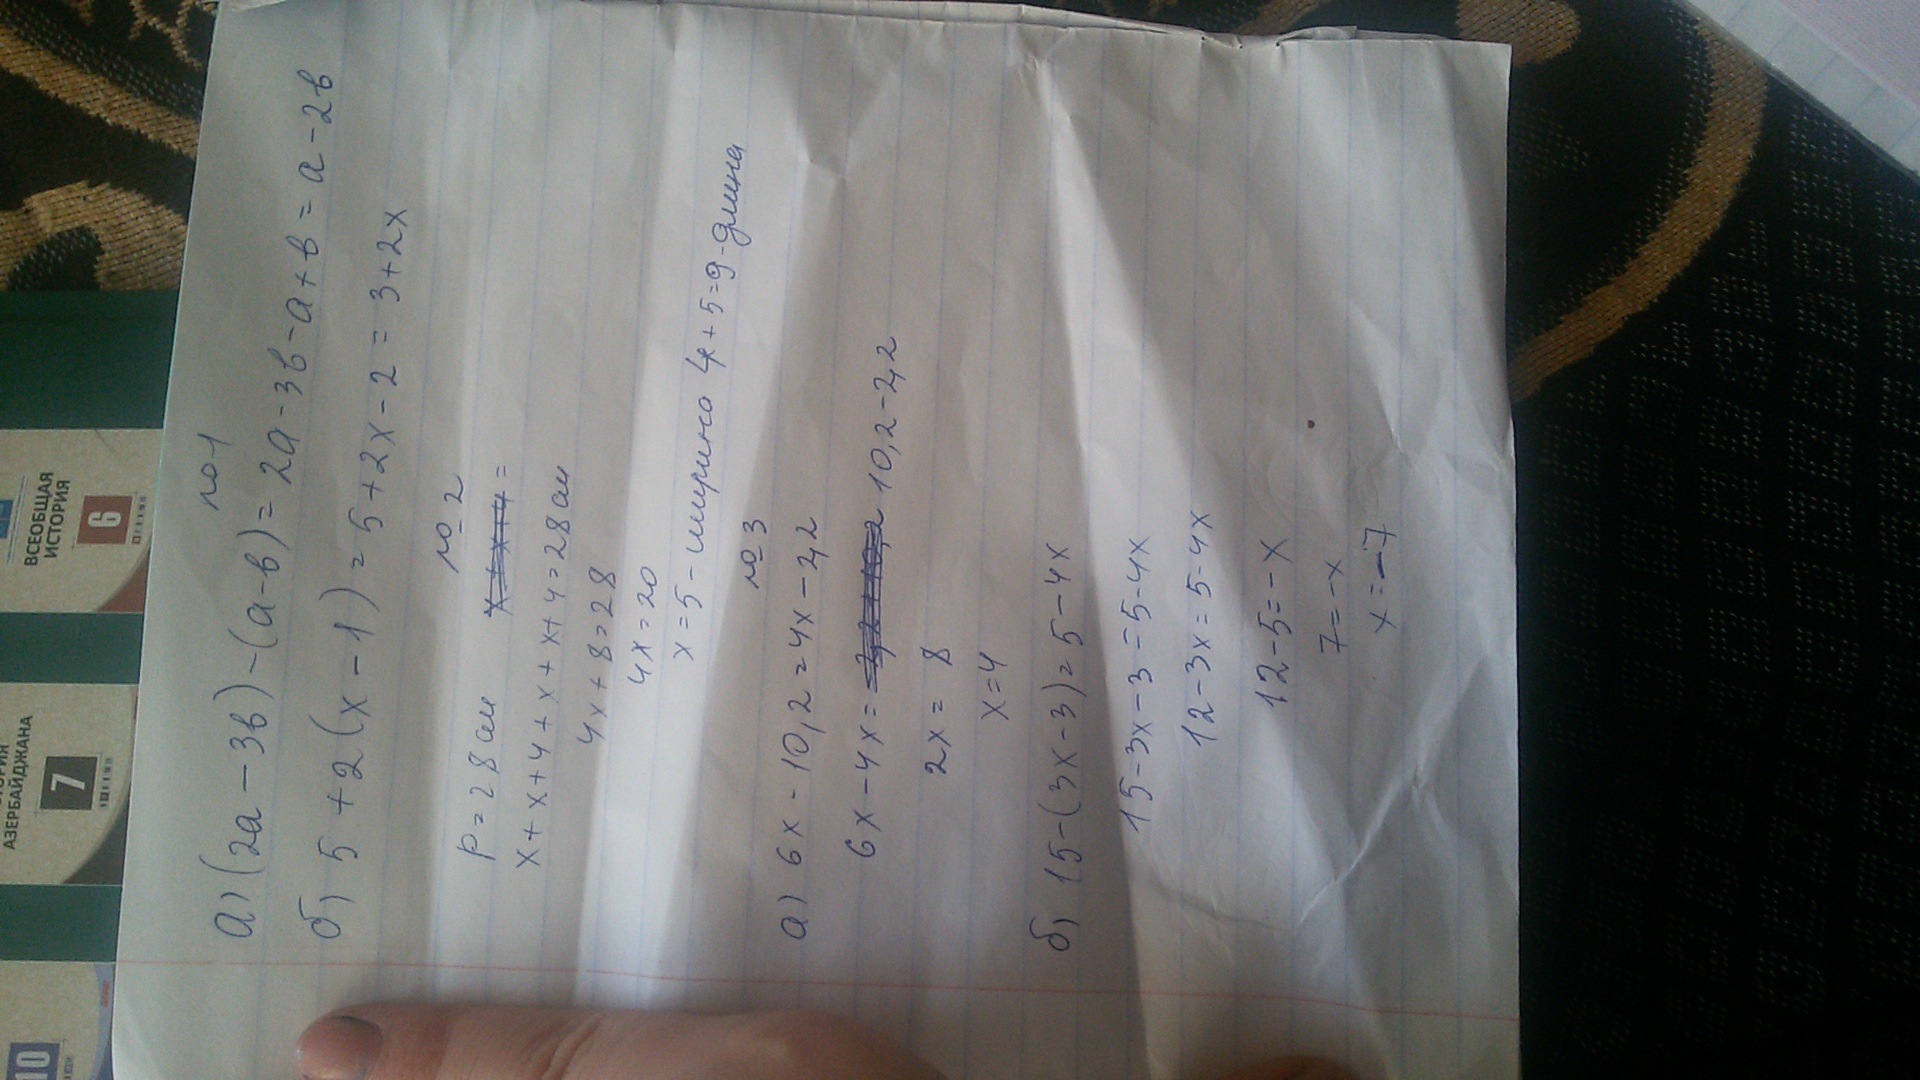 №1
а) (2а - 3в) - (а - в) = 2а - 3в - а + в = а - 2в
б) 5 + 2(х - 1) = 5 + 2х - 2 = 3 + 2х
№2
Р = 28 см
х + х + 4 + х + х + 4 = 28 см
4х + 8 = 28
4х = 20
х = 5 - ширина 4 + 5 = 9 - длина
№3
а) 6х - 10,2 = 4х - 2,2
6х - 4х = 10,2 - 2,2
2х = 8
х = 4
б) 15 - (3х - 3) = 5 - 4х
15 - 3х - 3 = 5 - 4х
12 - 3х = 5 - 4х
12 - 5 = - х
7 = - х
х = - 7
ВСЕОБЩАЯ
ИСТОРИЯ
6
АЗЕРБАЙДЖАНА
7
10